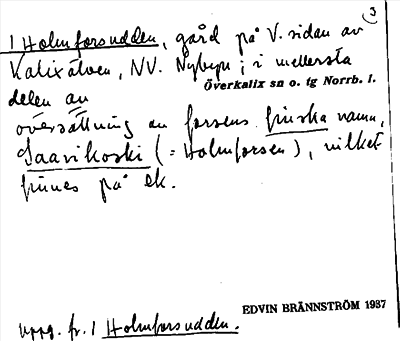 3
1 Holmforsudden, gård på V. sidan av
Kalixälven, NV. Nybyn; i mellersta
Överkalix sn o. tg Norrb. l.
delen av
översättning av forsens finska namn,
Saarikoski (= Holmforsen), vilket
finnes på ek.
EDVIN BRÄNNSTRÖM 1937
Uppg. fr. 1 Holmforsudden.